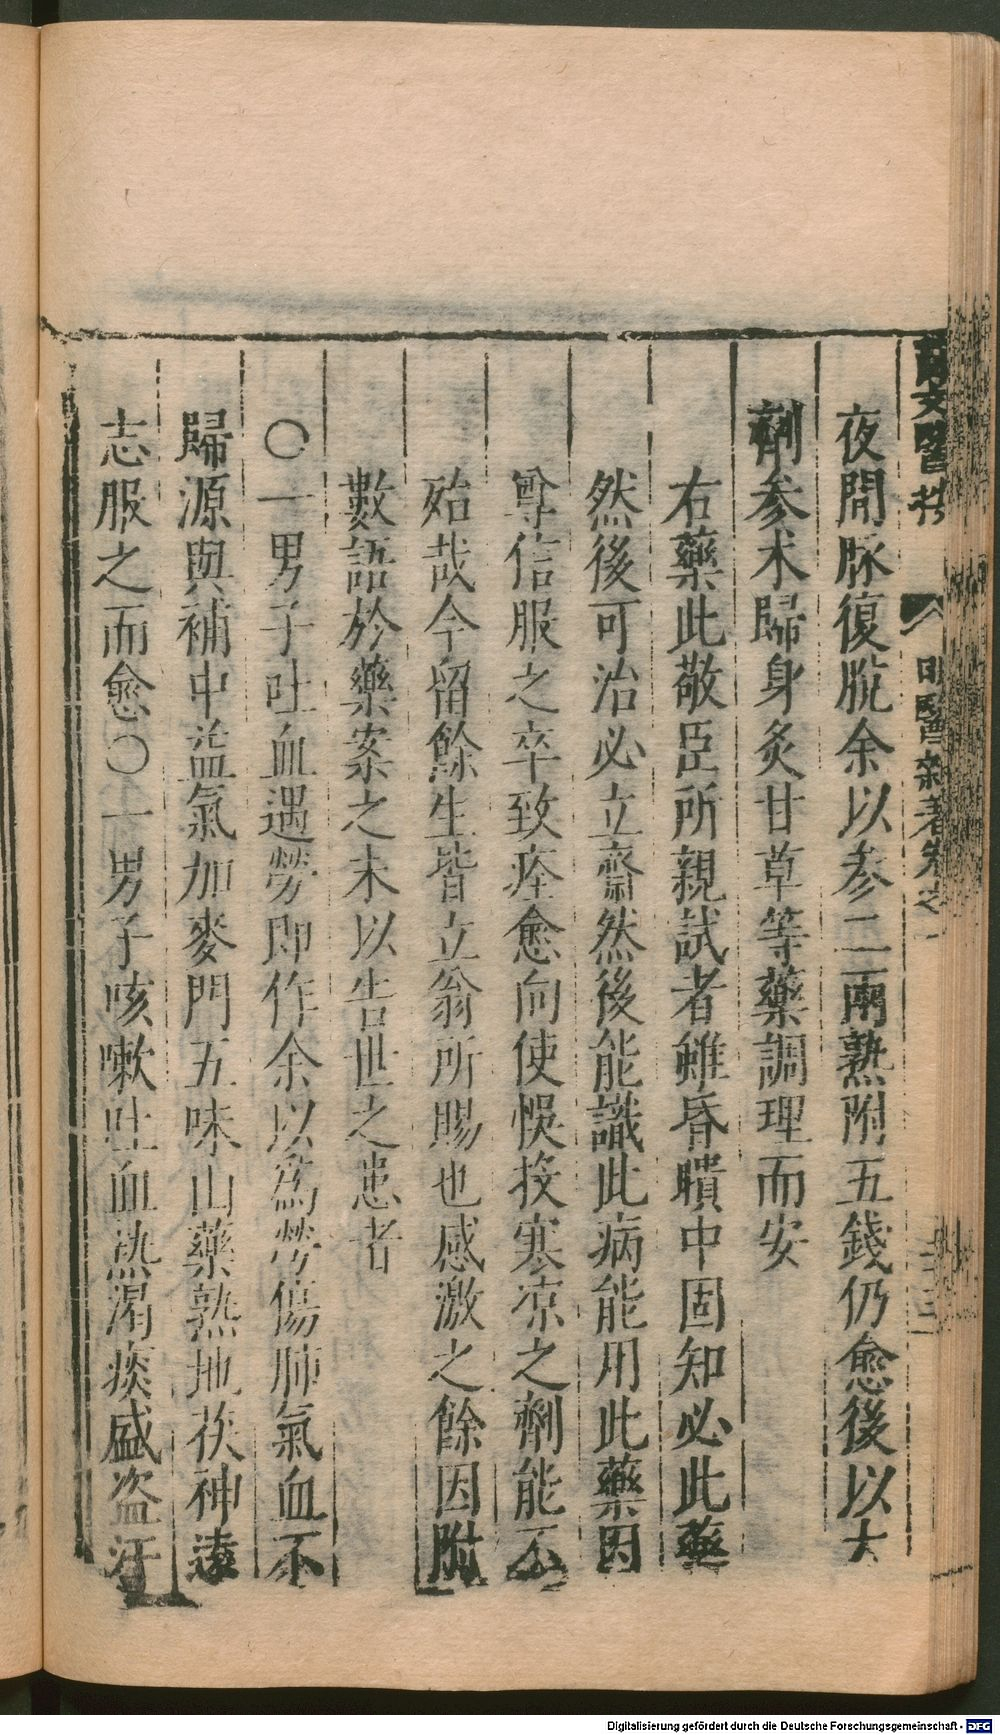 夜間脉復脫余以参二兩熟附五錢仍愈後以大
劑参术歸身炙甘草等藥調理而安
右藥此敬臣所親試者雖昏聵中固知必此藥
然後可治必立齋然後能識此病能用此藥因
尊信服之卒致痊愈向使悞投寒凉之劑能不
殆哉今留餘生皆立翁所賜也感激之餘因附
數語於藥案之末以告世之患者
〇一男子吐血遇勞即作余以爲勞傷肺氣血不
歸源與補中益氣加麥門五味山藥熟地茯神遠
志服之而愈〇一男子咳嗽吐血熱渴痰盛盗汗
醫 明醫雜著卷之一
Digitalisierung gefördert durch die Deutsche Forschungsgemeinschaft - DFG